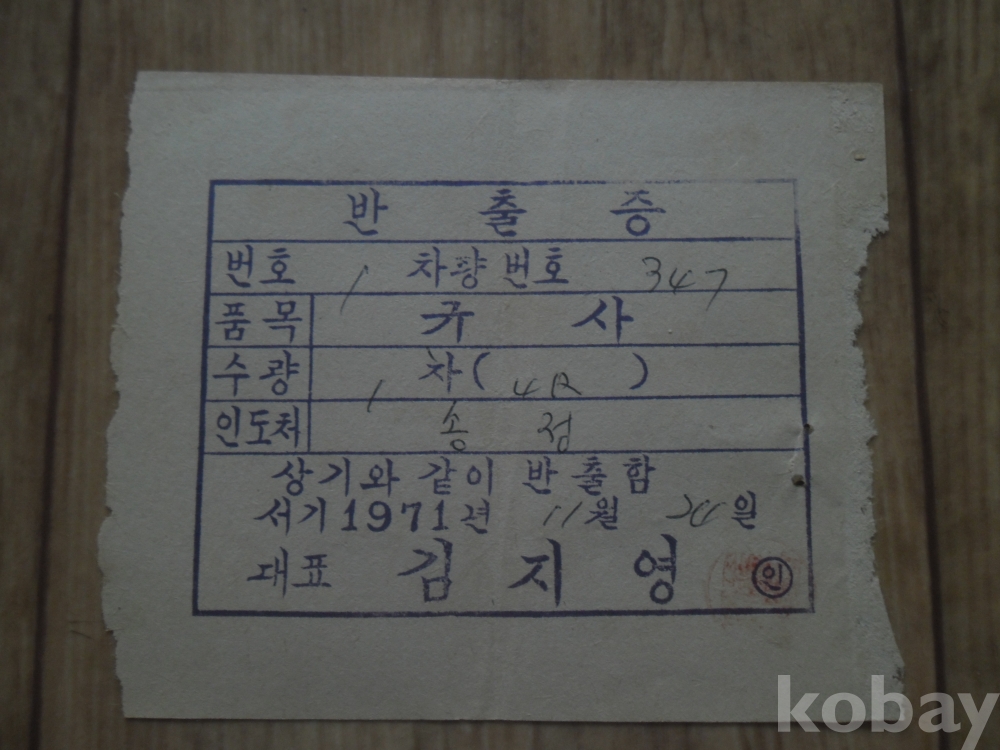 반 출 증
번호 1 차량 번호 347
품 목 규 사
수 량 1 차 ( 4R )
인도처 송 정
상기와 같이 반 출 함
서기 1971년 11월 24일
대표 김 지 영 인
kobay